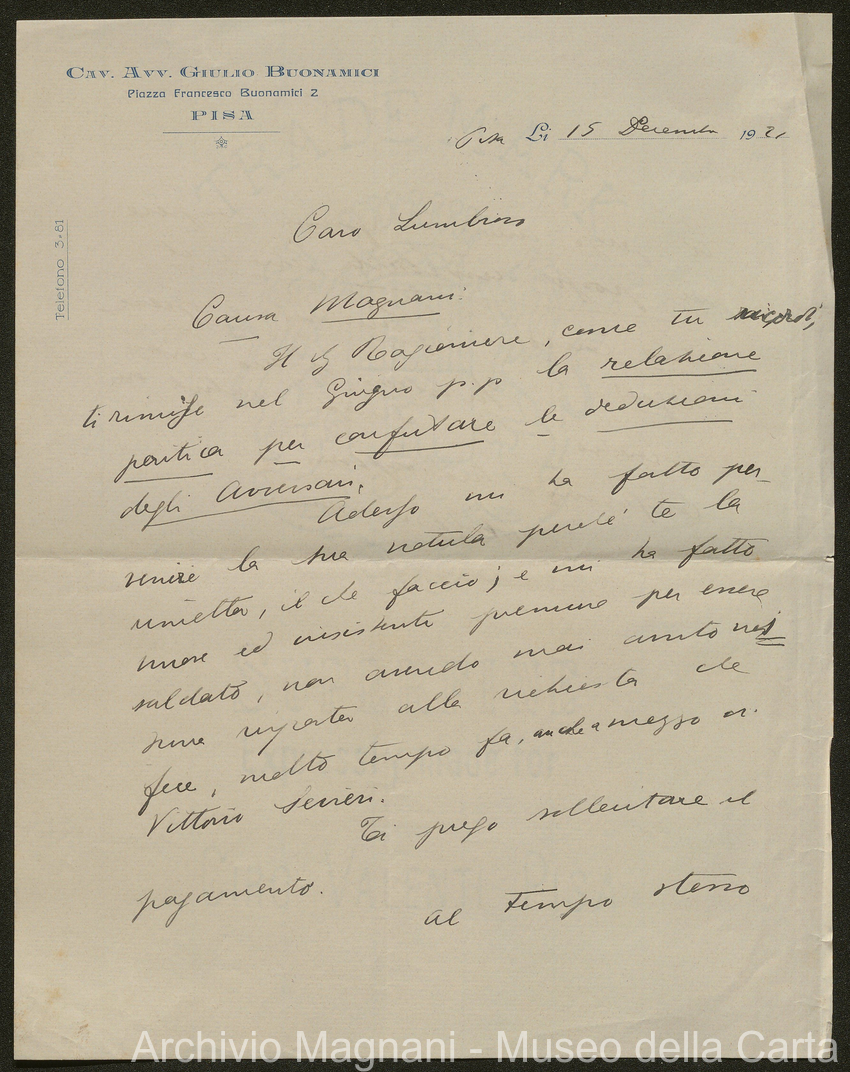 Cav. Avv. Giulio Buonamici
Piazza Francesco Buonamici 2
PISA
Pisa Li 15 Decembre 1921
Telefono 3-81
Caro Lumbroso
Causa Magnani.
Il Ragioniere, come tu ricordi,
ti rimise nel Giugno p.p la relazione
peritica per confutare le deduzioni
degli Avversari.
Adesso mi ha fatto per-
venire la sua notula perché te la
rimetta, il che faccio; e mi ha fatto
vive ed insistenti premure per essere
saldato, non avendo mai avuto nes
suna risposta alla richiesta che
fece, molto tempo fa, anche a mezzo
Vittorio Severi.
Ti prego sollecitare il
pagamento.
al tempo stesso
Archivio Magnani - Museo della Carta